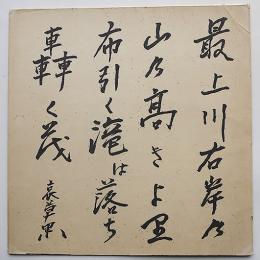 最上川右岸乃
山乃高きよ里
布引く滝は落ち
轟く茂
哀草果